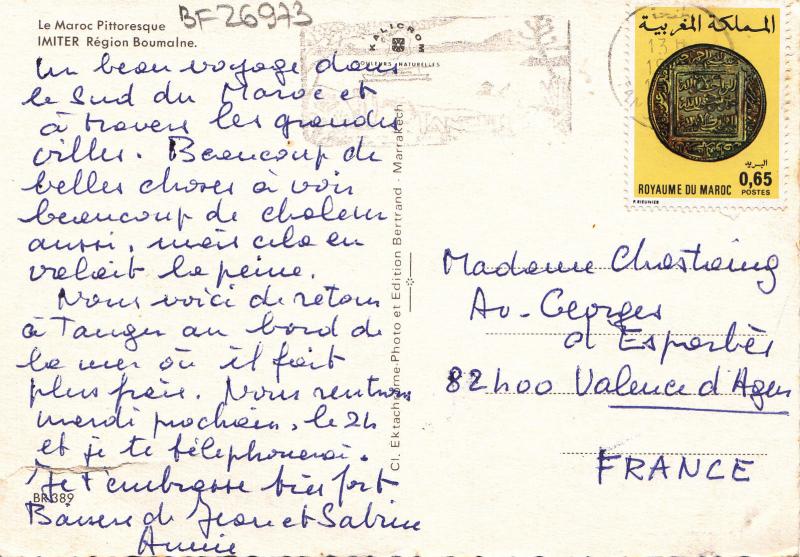 BF26973
Le Maroc Pittoresque
IMITER Région Boumalne.
Un beau voyage dans
le Sud du Maroc et
à travers les grandes
villes. Beaucoup de
belles choses à voir
beaucoup de chaleur
aussi, mais cela en
valait la peine.
Nous voici de retour
à Tanger au bord de
la mer où il fait
plus frais. Nous rentrons
mardi prochain, le 24
et je te téléphonerai.
Je t'embrasse très fort
Baisers de Jean et Sabine
Annie
BR 389
Cl. Ektachrome-Photo et Edition Bertrand - Marrakech
KALICROM
COULEURS NATURELLES
المملكة المغربية
البريد
0,65
ROYAUME DU MAROC POSTES
P. RIEUNIER
13 H
Madame Chastaing
Av. Georges
d'Esparbès
82400 Valence d'Agen
FRANCE